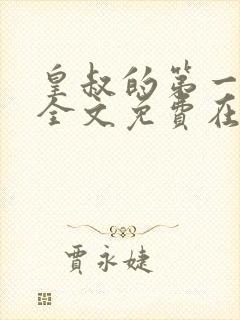 皇叔的第一
全文免费在
贾永婕